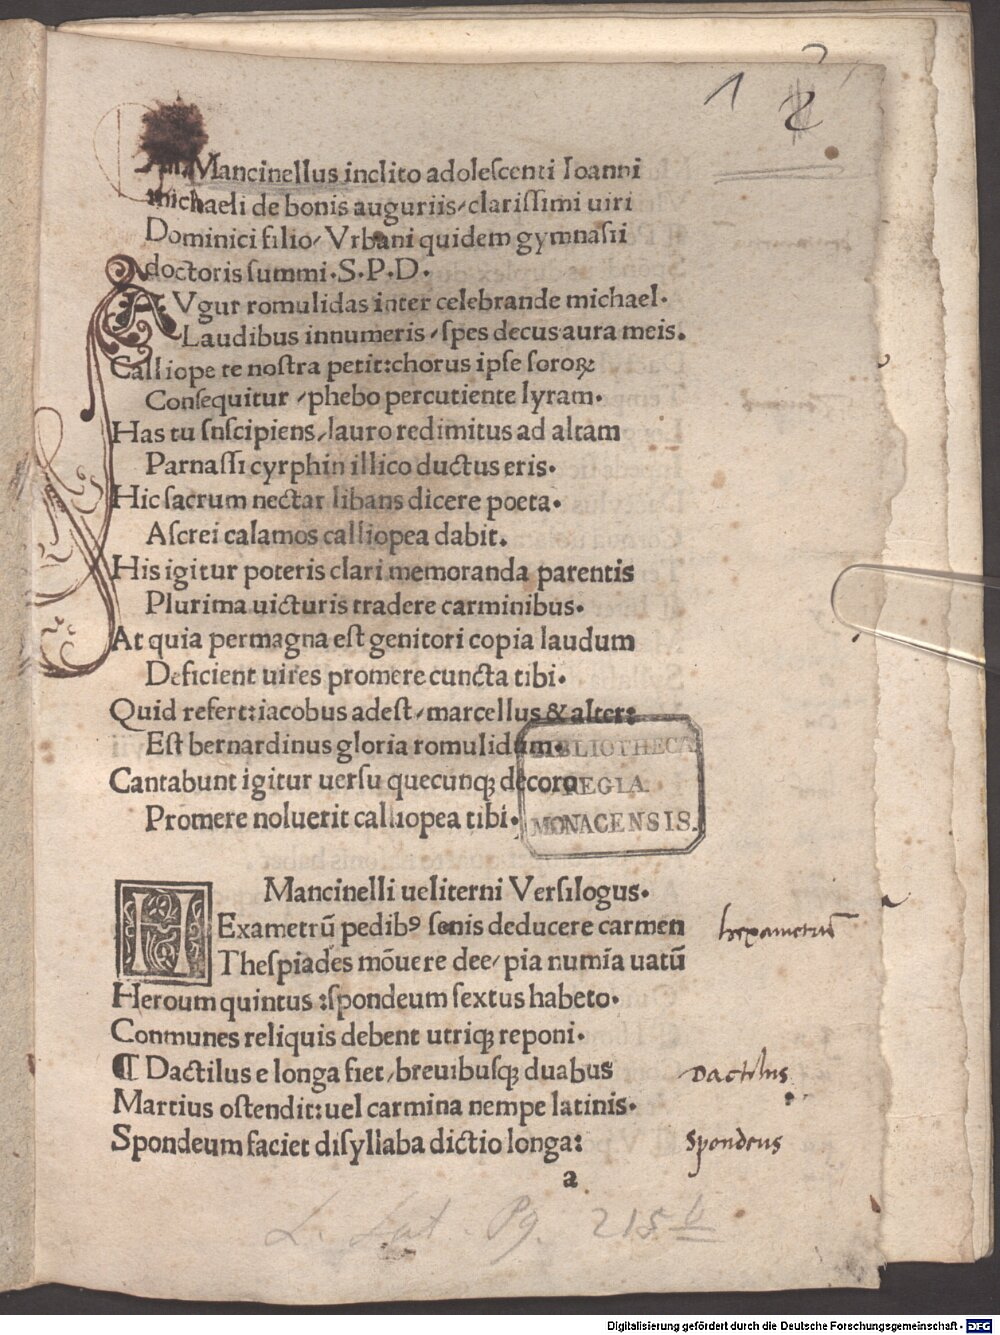 1 2
Mancinellus inclito adolescenti Ioanni
michaeli de bonis auguriis/clarissimi uiri
Dominici filio/ Vrbani quidem gymnasii
doctoris summi.S.P.D.
AVgur romulidas inter celebrande michael.
Laudibus innumeris/spes decus aura meis.
Calliope te nostra petit:chorus ipse sororꝝ
Consequitur/phebo percutiente lyram.
Has tu suscipiens/lauro redimitus ad altam
Parnassi cyrphin illico ductus eris.
Hic sacrum nectar libans dicere poeta.
Ascrei calamos calliopea dabit.
His igitur poteris clari memoranda parentis
Plurima uicturis tradere carminibus.
At quia permagna est genitori copia laudum
Deficient uires promere cuncta tibi.
Quid refert:iacobus adest/marcellus & alter:
Est bernardinus gloria romulidum.
Cantabunt igitur uersu quecunqꝫ decoro
Promere noluerit calliopea tibi.
BIBLIOTHECA
REGIA
MONACENSIS.
Mancinelli ueliterni Versilogus.
HExametrū pedibꝰ senis deducere carmen
hexametrū
Thespiades mōuere dee/pia numīa uatū
Heroum quintus:spondeum sextus habeto.
Conmunes reliquis debent utriqꝫ reponi.
¶ Dactilus e longa fiet/breuibusqꝫ duabus
Dactilus
Martius ostendit:uel carmina nempe latinis.
Spondeum faciet disyllaba dictio longa:
Spondeus
a
L. Lat. Pg. 215 b
Digitalisierung gefördert durch die Deutsche Forschungsgemeinschaft - DFG